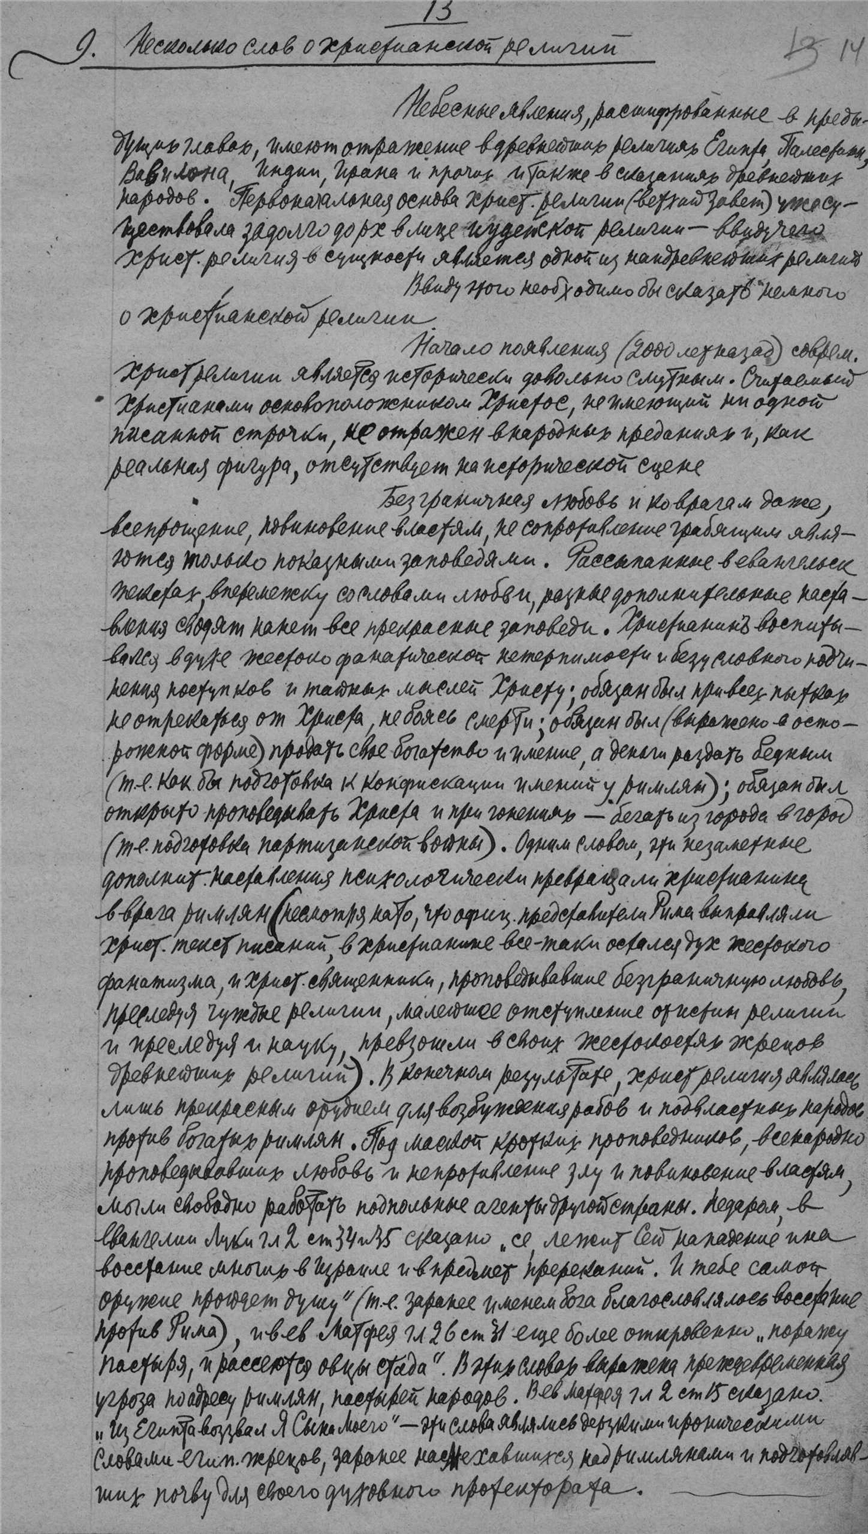 13
13 14
9. Несколько слов о христианской религии
Небесные явления, расшифрованные в преды-
дущих главах, имеют отражение в древнейших религиях Египта, Палестины,
Вавилона, Индии, Ирана и прочих и также в сказаниях древнейших
народов. Первоначальная основа христ. религии (ветхий завет) уже су-
ществовала задолго до рх в лице иудейской религии — ввиду чего
христ. религия в сущности является одной из наидревнейших религий
Ввиду этого необходимо бы сказать немного
о христианской религии
Начало появления (2000 лет назад) соврем.
христ религии является исторически довольно смутным. Считаемый
христианами основоположником Христос, не имеющий ни одной
писанной строчки, не отражен в народных преданиях и, как
реальная фигура, отсутствует на исторической сцене
Безграничная любовь и ко врагам даже,
всепрощение, повиновение властям, не сопротивление грабящим явля-
ются только показными заповедями. Рассыпанные в евангельск
текстах, вперемежку со словами любви, разные дополнительные настав-
вления сводят на нет все прекрасные заповеди. Христианинъ воспиты-
вался в духе жестоко фанатической нетерпимости и безусловного подчи-
нения поступков и тайных мыслей Христу; обязан был при всех пытках
не отрекаться от Христа, не боясь смерти; обязан был (выражено в осто-
рожной форме) продать свое богатство и имение, а деньги раздать бедным
(т.е. как бы подготовка к конфискации имений у римлян); обязан был
открыто проповедывать Христа и при гонениях — бегать из города в город
(т.е. подготовка партизанской войны). Одним словом, эти незаметные
дополнит. наставления психологически превращали христианина
в врага римлян (несмотря на то, что офиц. представители Рима выправляли
христ. текст писаний, в христианине все-таки остался дух жестокого
фанатизма, и христ. священники, проповедывавшие безграничную любовь,
преследуя чуждые религии, малейшее отступление от истин религии
и преследуя и науку, превзошли в своих жестокостях жрецов
древнейших религий). В конечном результате, христ религия являлась
лишь прекрасным орудием для возбуждения рабов и подвластных народов
против богатых римлян. Под маской кротких проповедников, всенародно
проповедывавших любовь и непротивление злу и повиновение властям,
могли свободно работать подпольные агенты другой страны. Недаром, в
Евангелии Луки гл 2 ст 34 и 35 сказано „се, лежит Сей на падение и на
восстание многих в Израиле и в предмет пререканий. И тебе самой
оружие пройдет душу" (т.е. заранее именем бога благословлялось восстание
против Рима), и в ев Матфея гл 26 ст 31 еще более откровенно „поражу
пастыря, и рассеются овцы стада". В этих словах выражена преждевременная
угроза по адресу римлян, пастырей народов. В ев Матфея гл 2 ст 15 сказано.
„Из Египта воззвал Я Сына Моего" — эти слова являлись дерзкими ироническими
словами егип. жрецов, заранее насмехавшихся над римлянами и подготовляв-
ших почву для своего духовного протектората.